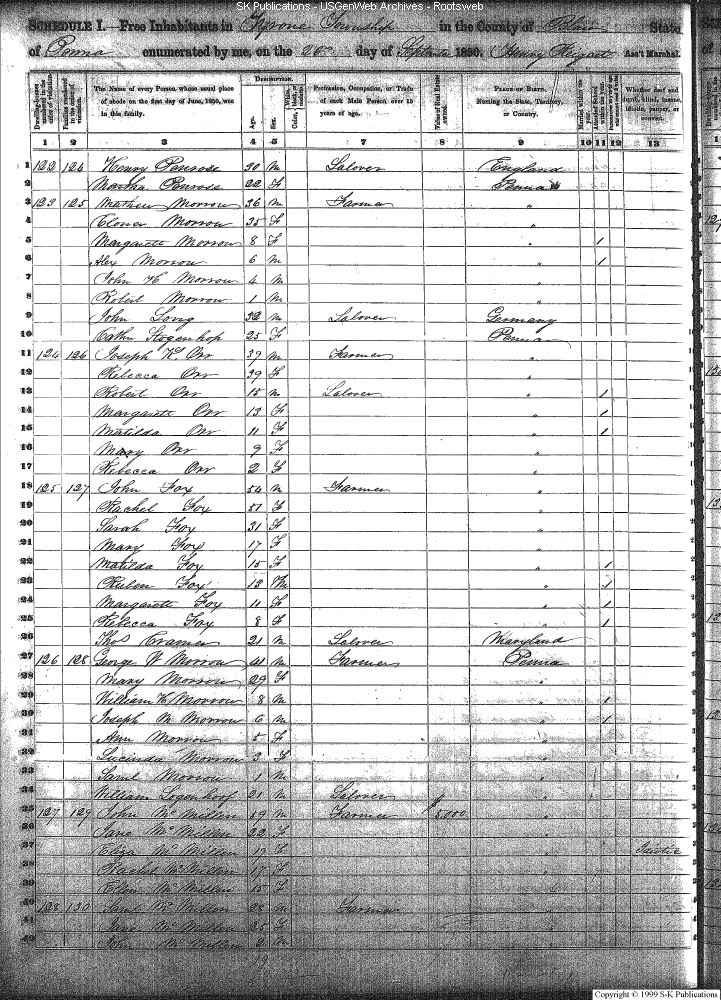 SK Publications - USGenWeb Archives - Rootsweb
SCHEDULE I.—Free Inhabitants in Tyrone Township in the County of Blair State
of Penna enumerated by me, on the 26th day of Septembr 1850. Henry Ass't Marshal.
DESCRIPTION.
Dwelling-houses numbered in the order of visitation. Families numbered in the order of visitation. The Name of every Person whose usual place of abode on the first day of June, 1850, was in this family. Age. Sex. Profession, Occupation, or Trade of each Male Person over 15 years of age. Value of Real Estate owned. PLACE OF BIRTH. Naming the State, Territory, or Country. Married within the year. Attended School within the year. Whether deaf and dumb, blind, insane, idiotic, pauper, or convict.
1 2 3 4 5 6 7 8 9 10 11 12 13
1 122 124 Henry Penrose 30 M Labourer England
2 Martha Penrose 22 F Penna
3 123 125 Mathew Morrow 36 M Farmer "
4 Elenor Morrow 35 F "
5 Margarett Morrow 8 F " /
6 Alex Morrow 6 M " /
7 John H Morrow 4 M "
8 Robert Morrow 1 M "
9 John Long 32 M Labourer Germany
10 Cathn Stogenhop 25 F Penna
11 124 126 Joseph K Orr 39 M Farmer "
12 Rebecca Orr 39 F "
13 Robert Orr 15 M Labourer " /
14 Margarett Orr 13 F " /
15 Matilda Orr 11 F " /
16 Mary Orr 9 F "
17 Rebecca Orr 2 F "
18 125 127 John Fox 54 M Farmer "
19 Rachel Fox 51 F "
20 Sarah Fox 31 F "
21 Mary Fox 17 F "
22 Matilda Fox 15 F " /
23 Ruben Fox 13 M " /
24 Margarett Fox 11 F " /
25 Rebecca Fox 8 F " /
26 Thos Cramer 21 M Labourer Maryland
27 126 128 George W Morrow 41 M Farmer Penna
28 Mary Morrow 29 F "
29 William H Morrow 8 M " /
30 Joseph M Morrow 6 M " /
31 Ann Morrow 5 F "
32 Lucinda Morrow 3 F "
33 Saml Morrow 1 M "
34 William Logenhoof 21 M Labourer "
35 127 129 John McMillen 59 M Farmer $5,000 "
36 Jane McMillen 22 F "
37 Eliza McMillen 19 F " Idiotic
38 Rachel McMillen 17 F "
39 Ellen McMillen 15 F "
40 128 130 Saml McMillen 28 M Farmer "
41 Jane McMillen 25 F "
42 John McMillen 2 M "
Copyright © 1999 S-K Publications